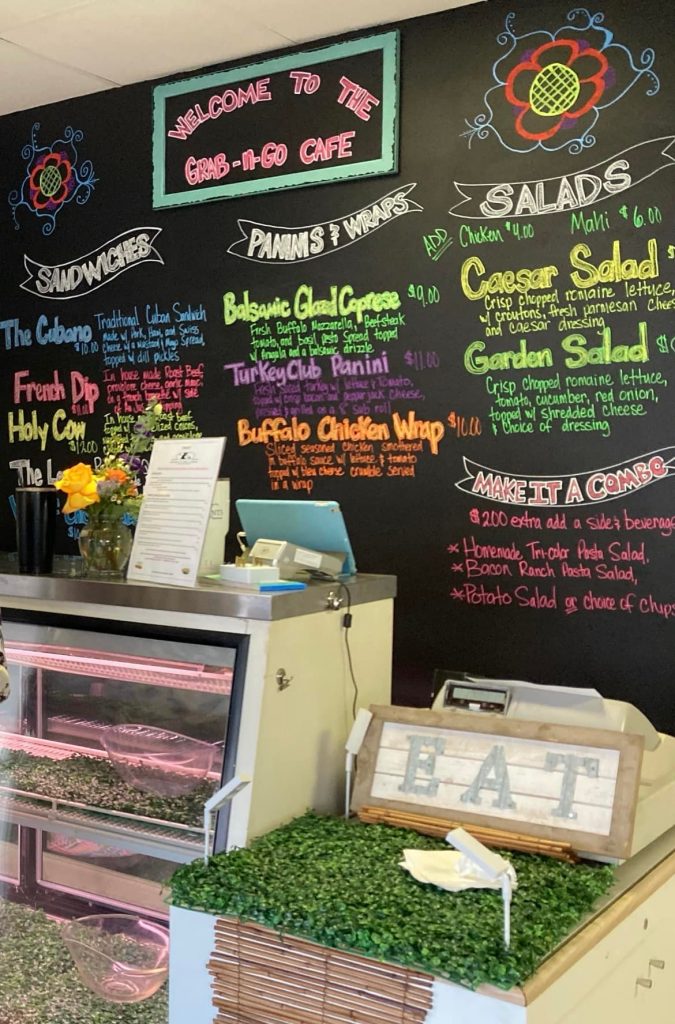 WELCOME TO THE
GRAB-n-GO CAFE
SANDWICHES
The Cubano
10.00
Traditional Cuban Sandwich
made w/ Pork, Ham, and Swiss
Cheese w/ a mustard & mayo Spread,
topped w/ dill pickles
French Dip
$11.00
In house made Roast Beef,
provolone cheese, garlic mayo,
Holy Cow
$12.00
In house roast beef,
onions,
PANINIS & WRAPS
Balsamic Glazed Caprese $9.00
Fresh Buffalo Mozzarella, Beefsteak
tomato, and basil pesto Spread topped
w/ Arugula and a balsamic drizzle
Turkey Club Panini $11.00
Fresh Sliced turkey w/ lettuce & tomato,
topped w/ crisp bacon and pepper jack cheese,
pressed panini on a 8" sub roll
Buffalo Chicken Wrap $10.00
Sliced seasoned chicken smothered
in buffalo sauce w/ lettuce & tomato
topped w/ bleu cheese crumble served
in a wrap
SALADS
ADD Chicken $4.00 Mahi $6.00
Caesar Salad $
Crisp chopped romaine lettuce,
w/ croutons, fresh parmesan cheese
and caesar dressing
Garden Salad $
Crisp chopped romaine lettuce,
tomato, cucumber, red onion,
topped w/ shredded cheese
& choice of dressing
MAKE IT A COMBO
$2.00 extra add a side & beverage
* Homemade Tri-color Pasta Salad,
* Bacon Ranch Pasta Salad,
* Potato Salad or choice of chips
EAT